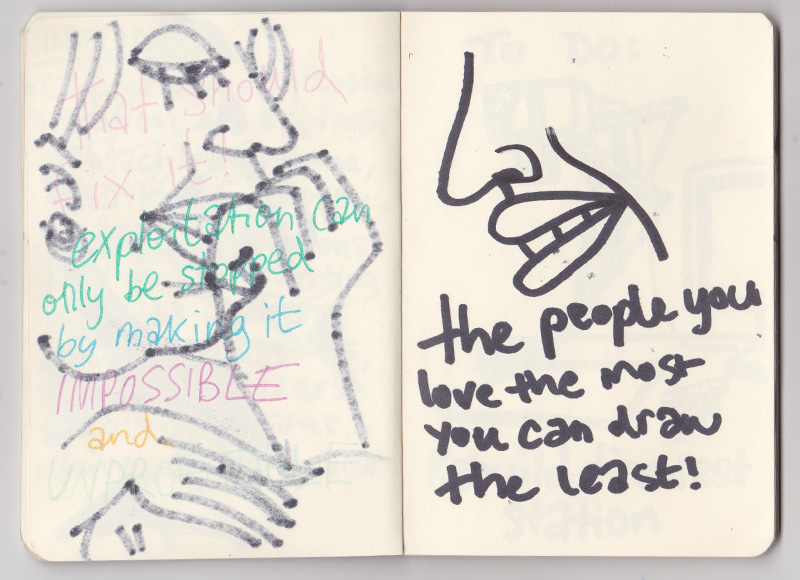 that should
fix it!
exploitation can
only be stopped
by making it
IMPOSSIBLE
and
UNPROFITABLE
TO DO:
the people you
love the most
you can draw
the least!
station